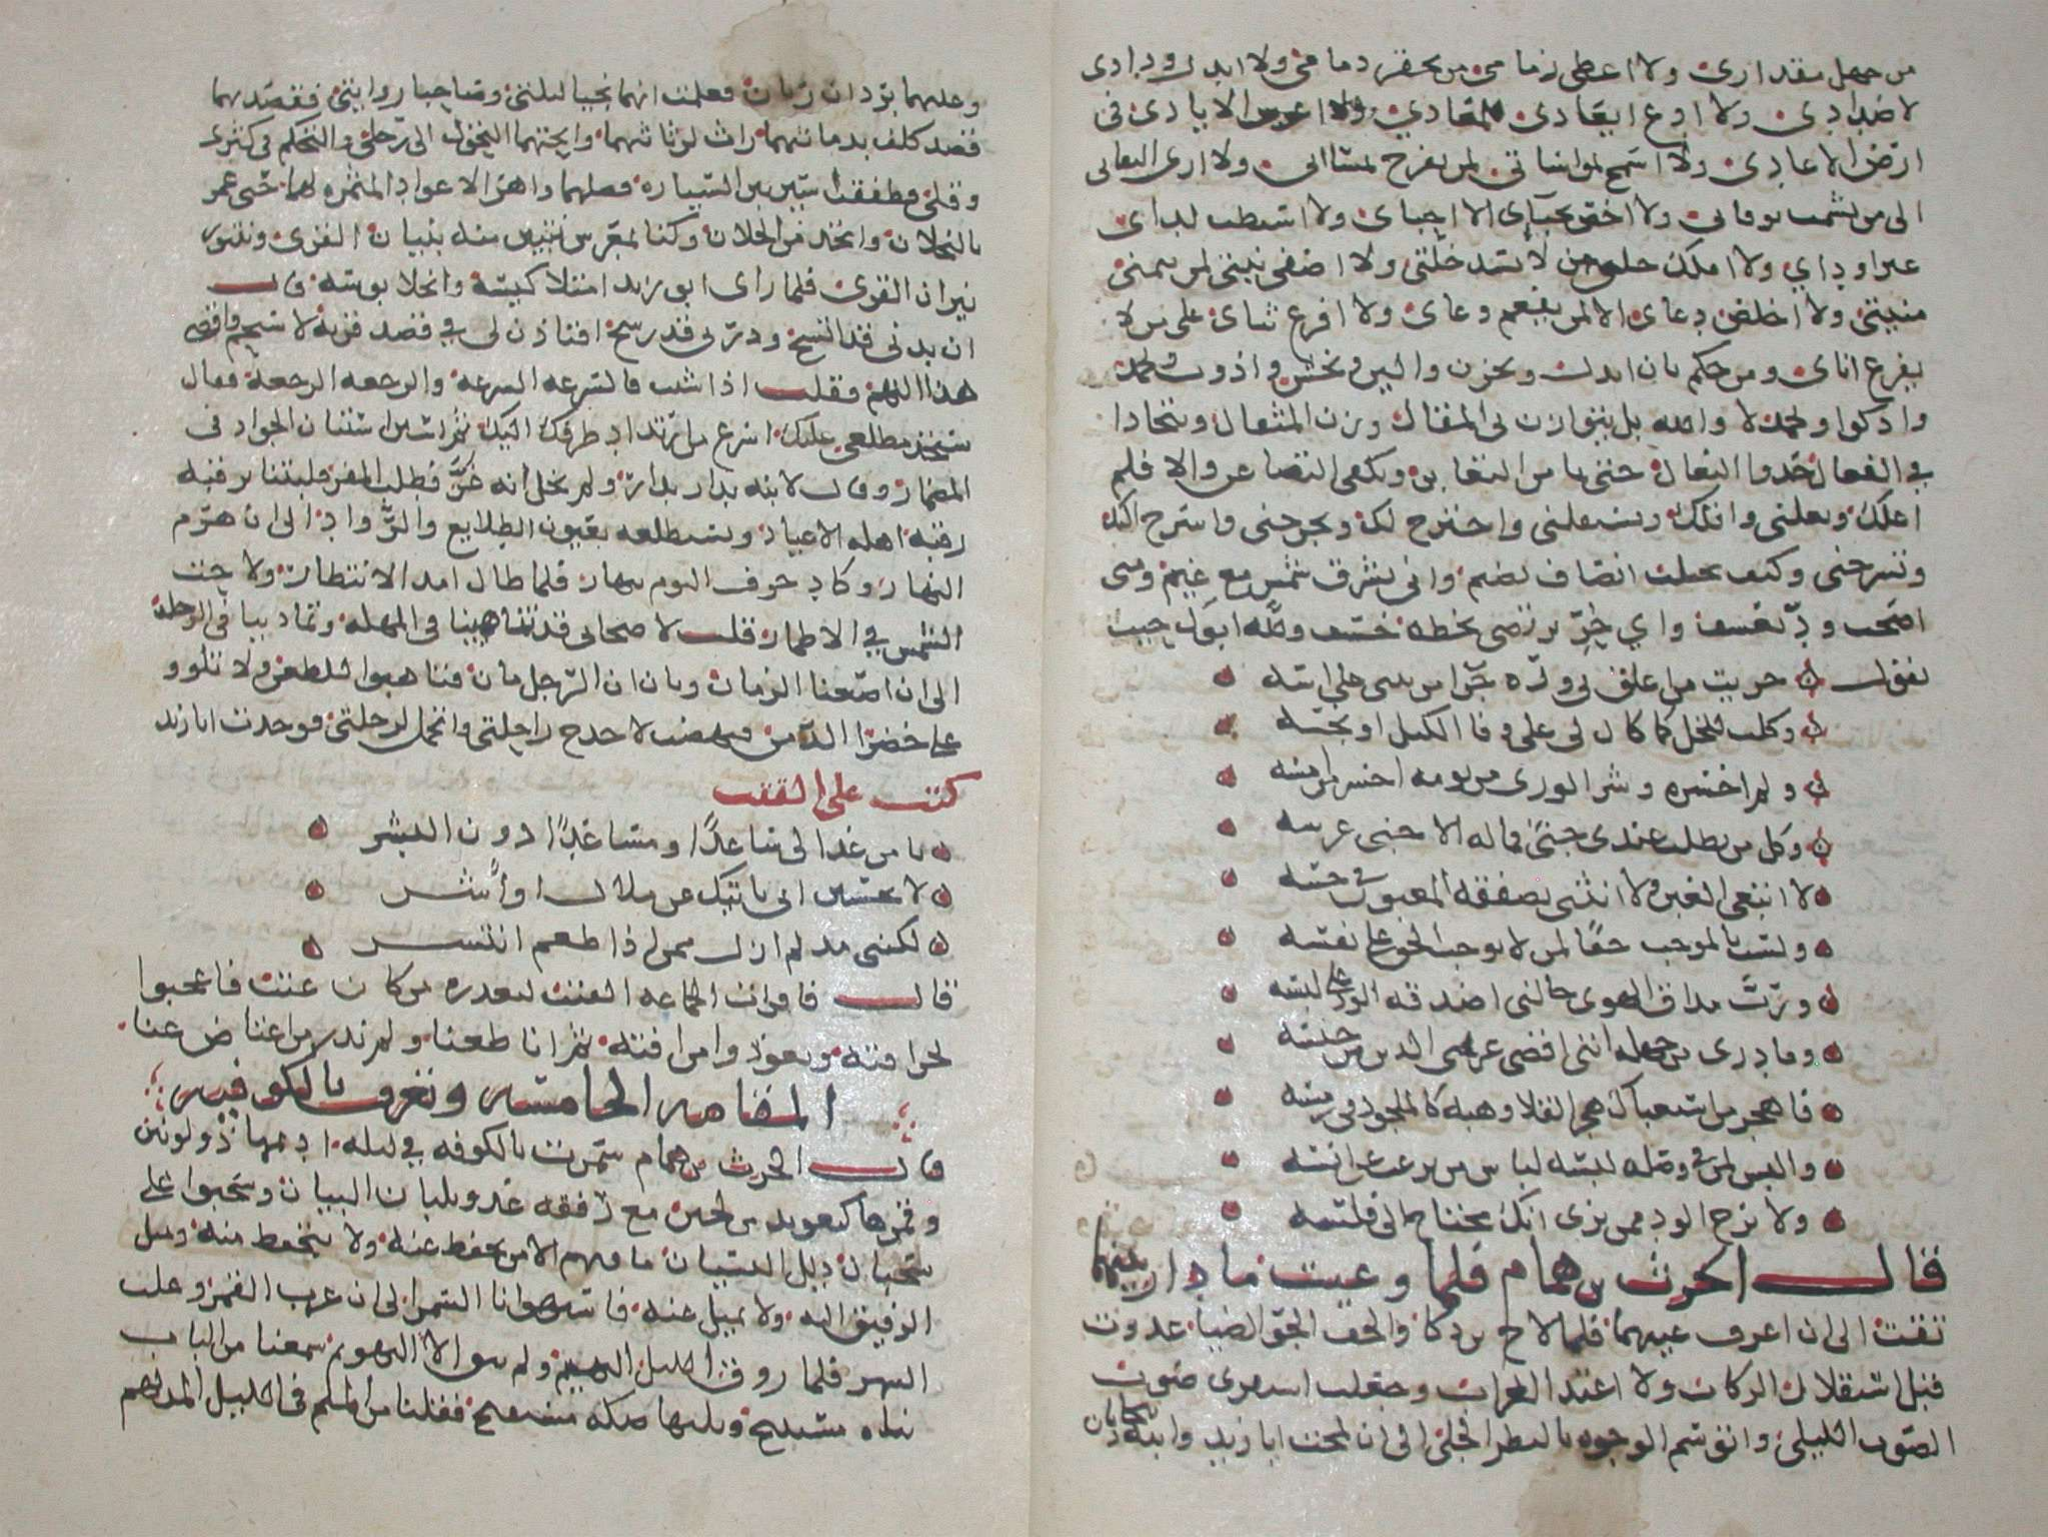 من جهل مقداري ولا اعطي زمامي من يخفر ذمامي ولا ابذل ودادي
لاضدادي ولا ادع ايعادي للمعادي ولا اغرس الايادي في
ارض الاعادي ولا اسمح لمواساتي لمن يفرح لمسااتي ولا ارى التفاتي
الى من يشمت بوفاتي ولا اخص بحبآى الا احباى ولا استطب لداى
غير اوداي ولا املك خلتي من لا يسد خلتي ولا اصفي نيتي لمن يتمنى
منيتي ولا اخلص دعاى الا لمن يفعم وعاى ولا افرغ ثناى على من لا
يفرغ اناى ومن حكم بان ابذل وتخزن والين وتخشن واذوب وتجمد
واذكوا وتخمد لا والله بل نتوازن في المقال وزن المثقال ونتحاذا
في الفعال حذوا النعال حتى نامن التغابن ونكفى التضاعن والا فلم
اعلك وتعلني واقلك وتستقلني واجترح لك وتجرحني واسرح اليك
وتسرحني وكيف يجتلب انصاف بضيم واني تشرق شمس مع غيم ومتى
اصحب ود بعسف واي حر رضي بخطه خسف ولله ابوك حيث
يقول جزيت من اعلق بي وده جزا من يبني على اسه
وكلت للخل كما كال لي على وفا الكيل او بخسه
ولم اخسره وشر الورى من يومه اخسر من امسه
وكل من يطلب عندي جنى فما له الا جنى غرسه
لا ابتغي الغبن ولا انثني بصفقة المغبون في حسه
ولست بالموجب حقا لمن لا يوجب الحق على نفسه
ورب مذاق الهوى خالني اصدقه الود على لبسه
وما درى من جهله انني اقضي غريمي الدين من جنسه
فاهجر من استغباك هجر القلا وهبه كالملحود في رمسه
والبس لمن في وصله لبسه لباس من يرغب عن انسه
ولا ترج الود ممن يرى انك محتاج الى فلسه
قال الحرث بن همام فلما وعيت ما دار بينهما
تقت الى ان اعرف عينهما فلما لاح بن ذكا والحف الجو الضيا غدوت
قبل استقلال الركاب ولا اغتدا الغراب وجعلت استقري صوب
الصوت الليلي واتوسم الوجوه بالنظر الجلي الى ان لمحت ابا زيد وابنه يتحادثان
وعليهما بردان رثان فعلمت انهما نجيا ليلتي وصاحبا روايتي فقصدتهما
قصد كلف بدماثتهما راث لرثاثتهما وابحتهما التحول الى رحلي والتحكم في كثرى
وقلي وطفقت اسير بين السياره فضلهما واهز الاعواد المثمره لهما حتى غمر
بالنحلان واتخذ من الخلان وكنا بمعرس نتبين منه بنيان القرى ونتنور
نيران القرى فلما راى ابو زيد امتلا كيسه وانجلا بوسه قال
ان بدني قد اتسخ ودرني قد رسخ افتاذن لي في قصد قرية لاستحم واقضي
هذا المهم فقلت اذا شئت فالسرعه السرعه والرجعه الرجعة فقال
ستجد مطلعي عليك اسرع من ارتداد طرفك اليك ثم استن استنان الجواد في
المضمار وقال لابنه بدار بدار ولم نخل انه غر وطلب المفر فلبثنا نرقبه
رقبه اهله الاعياد ونستطلعه بعيون الطلايع والرواد الى ان هرم
النهار وكاد جرف اليوم ينهار فلما طال امد الانتظار ولاحت
الشمس في الاطمار قلت لاصحابي قد تناهينا في المهله وتمادينا في الرحلة
الى ان اضعنا الزمان وبان ان الرجل مان فتاهبوا للطعن ولا تلوو
على خضرا الدمن ونهضت لاحدج راحلتي واتحمل لرحلتي فوجدت ابا زيد
كتب على القتب
يا من غدا لي ساعدا ومساعدا دون البشر
لا تحسبن اني نايتك عن ملال او اشر
لكنني مذ لم ازل ممن اذا طعم انتشر
قال فاقرات الجماعه القتب ليعذره من كان عتب فاعجبوا
بخرافته وتعوذوا من افته ثم انا ظعنا ولم ندر من اعتاض عنا
المقامه الخامسه وتعرف بالكوفيه
قال الحرث بن همام سمرت بالكوفه في ليله اديمها ذو لونين
وقمرها كتعويد من لجين مع رفقه غذو بلبان البيان وسحبوا على
سحبان ذيل النسيان ما فيهم الا من يحفظ عنه ولا يتحفظ منه ويميل
الرفيق اليه ولا يميل عنه فاستهوانا السمر الى ان غرب القمر وغلب
السهر فلما روق الليل البهيم ولم يبق الا التهويم سمعنا من الباب
نباه مستنبح وتلتها صكه مستفتح فقلنا من الملم في الليل المدلهم